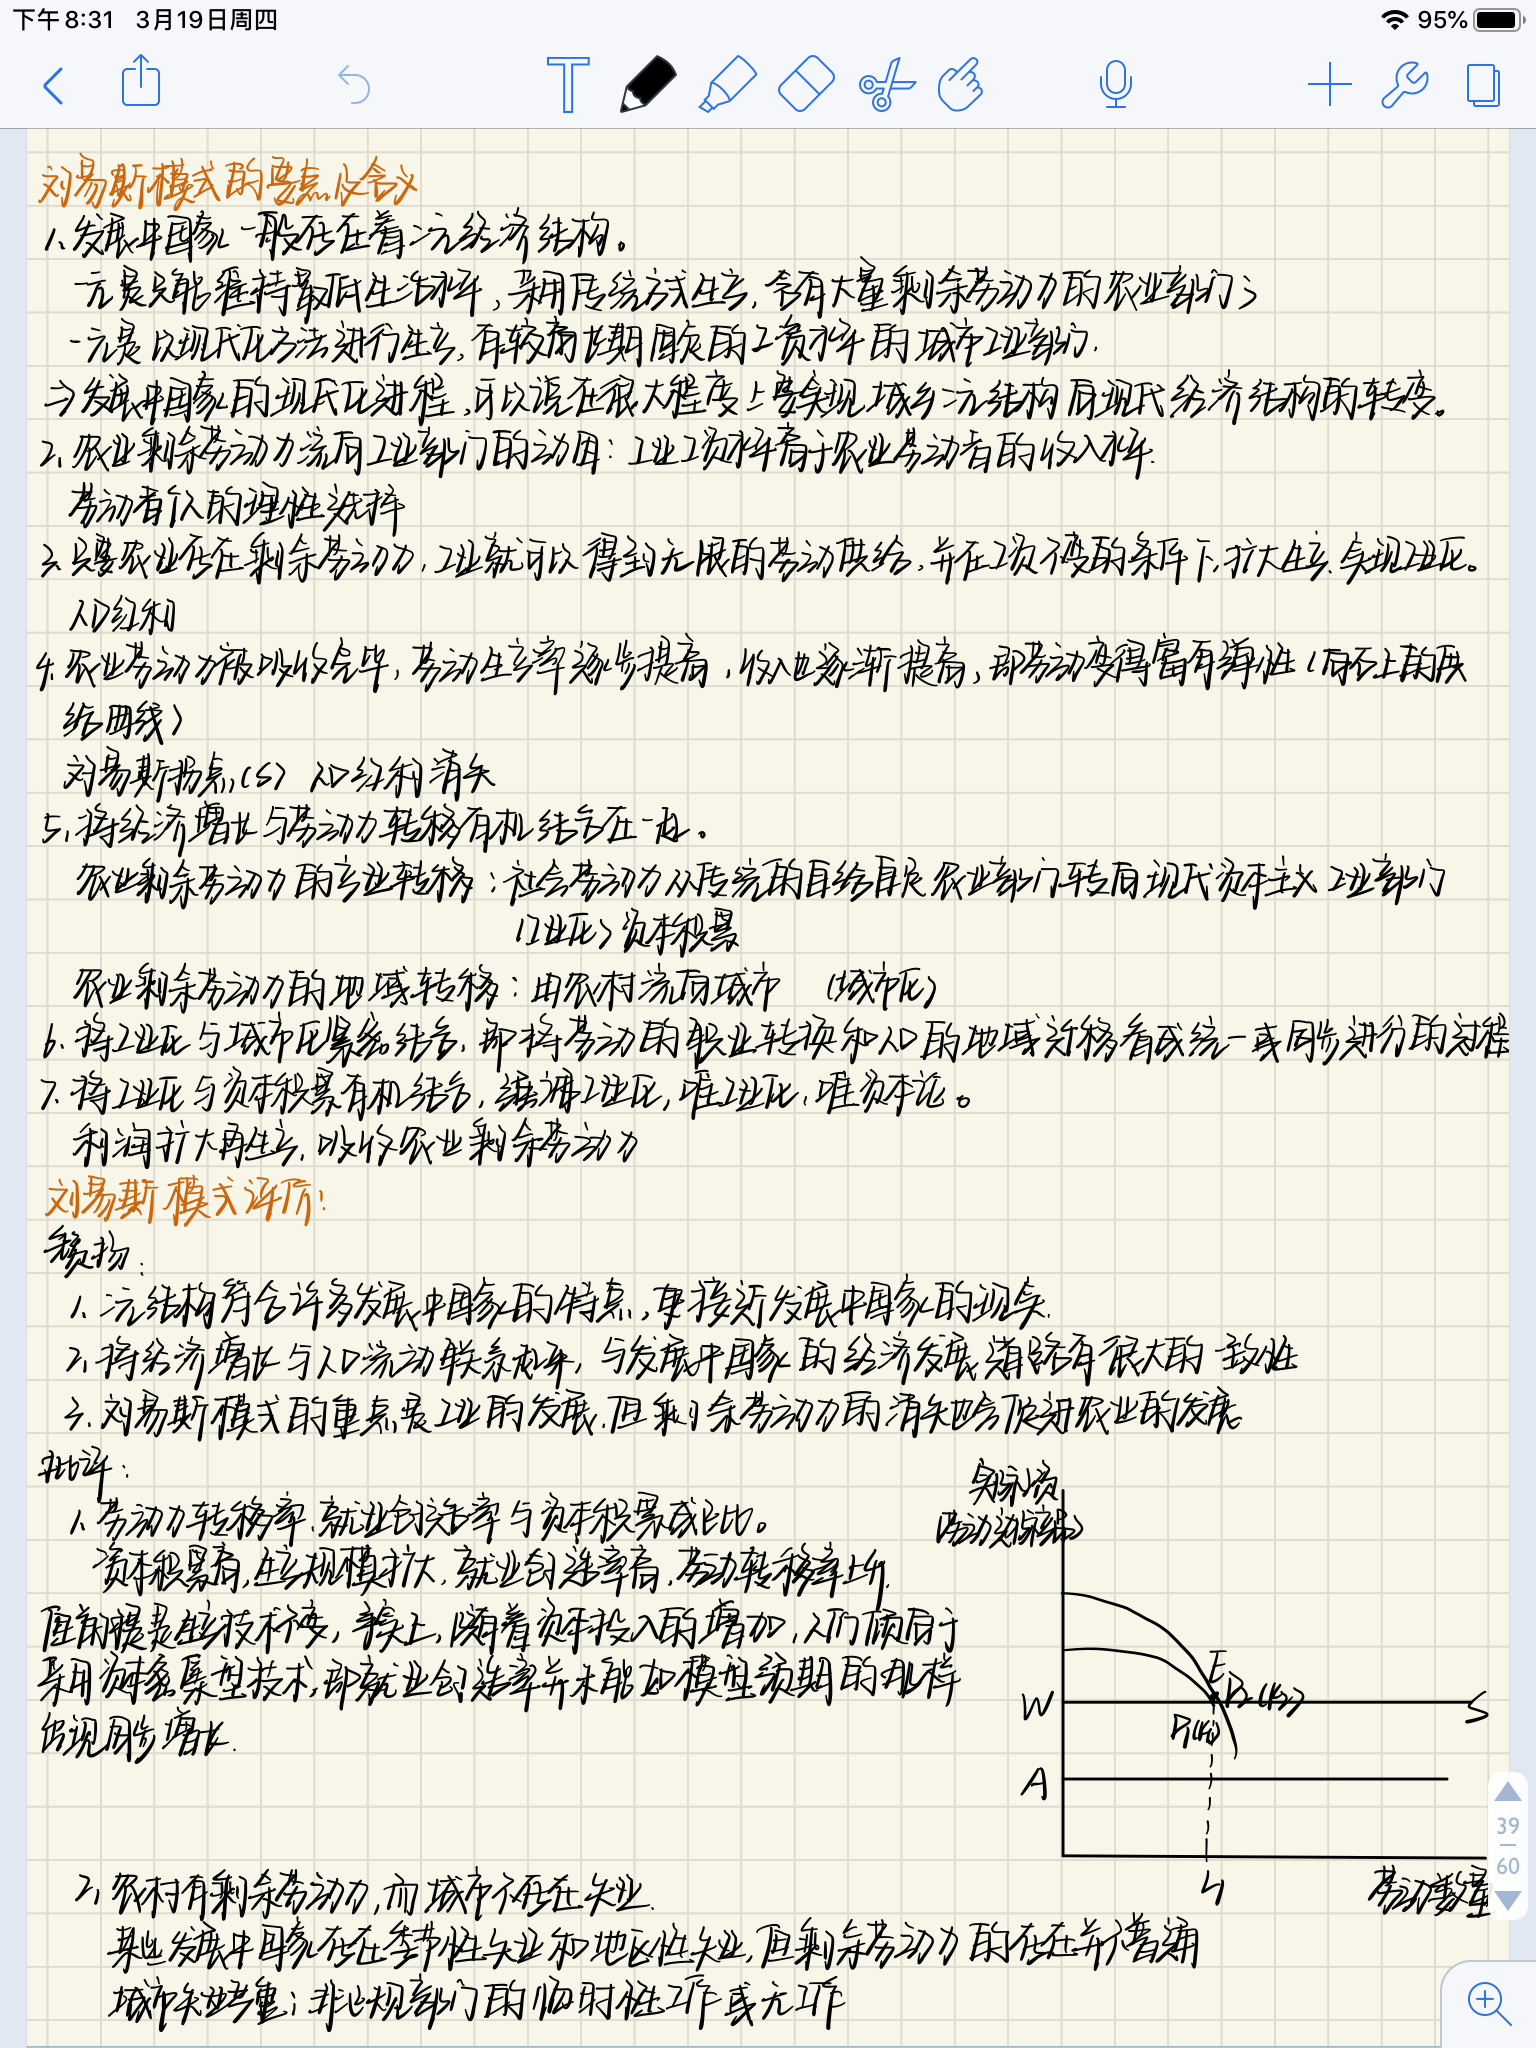 下午8:31 3月19日周四
95%
刘易斯模式的要点及含义
1. 发展中国家一般存在着二元经济结构。
一元是只能维持最低生活水平,采用传统方式生产,含有大量剩余劳动力的农业部门;
一元是以现代化方法进行生产,有较高长期固定的工资水平的城市工业部门.
→发展中国家的现代化进程,可以说在很大程度上要实现城乡二元结构向现代经济结构的转变。
2. 农业剩余劳动力流向工业部门的动因:工业工资水平高于农业劳动者的收入水平.
劳动者个人的理性选择
3. 只要农业存在剩余劳动力,工业就可以得到无限的劳动供给,并在工资不变的条件下,扩大生产,实现工业化。
人口红利
4. 农业劳动力被吸收完毕,劳动生产率逐步提高,收入也逐渐提高,即劳动变得富有弹性(向右上的供
给曲线)
刘易斯拐点(S) 人口红利消失
5. 将经济增长与劳动力转移有机结合在一起。
农业剩余劳动力的产业转移:社会劳动力从传统的自给自足农业部门转向现代资本主义工业部门
(工业化)资本积累
农业剩余劳动力的地域转移:由农村流向城市 (城市化)
6. 将工业化与城市化紧密结合,即将劳动的职业转换和人口的地域迁移看成统一或同步进行的过程
7. 将工业化与资本积累有机结合,强调工业化,唯工业化,唯资本论。
利润扩大再生产,吸收农业剩余劳动力
刘易斯模式评价:
积极:
1. 二元结构符合许多发展中国家的特点,更接近发展中国家的现实.
2. 将经济增长与人口流动联系起来,与发展中国家的经济发展道路有很大的一致性
3. 刘易斯模式的重点是工业的发展,但剩余劳动力的消失也会促进农业的发展。
批评:
1. 劳动力转移率、就业创造率与资本积累成正比。
资本积累高,生产规模扩大,就业创造率高,劳动转移率上升.
但前提是生产技术不变,事实上,随着资本投入的增加,人们倾向于
采用资本密集型技术,即就业创造率并未能如模型预期的那样
出现同步增长.
实际工资
(劳动边际产品)
E
D₂(K₂)
W
S
D₁(K₁)
A
L₁
劳动数量
39
60
2. 农村有剩余劳动力,而城市不存在失业.
某些发展中国家存在季节性失业和地区性失业,但剩余劳动力的存在并不普遍
城市失业严重;非正规部门的临时性工作或无工作